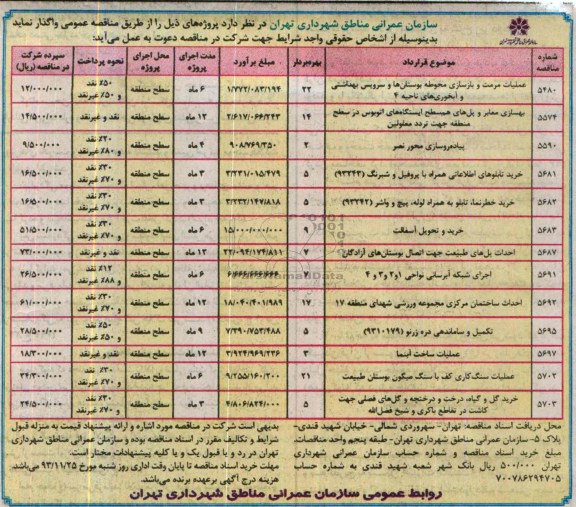 سازمان عمرانی مناطق شهرداری تهران در نظر دارد پروژه‌های ذیل را از طریق مناقصه عمومی واگذار نماید
بدینوسیله از اشخاص حقوقی واجد شرایط جهت شرکت در مناقصه دعوت به عمل می‌آید:
شماره مناقصه موضوع قرارداد بهره‌بردار مبلغ برآورد مدت اجرای پروژه محل اجرای پروژه نحوه پرداخت سپرده شرکت در مناقصه (ریال)
۵۴۸۰ عملیات مرمت و بازسازی محوطه بوستان‌ها و سرویس بهداشتی و آبخوری‌های ناحیه ۴ ۲۲ ۱/۷۷۲/۰۸۳/۱۹۴ ۶ ماه سطح منطقه ۵۰٪ نقد و ۵۰٪ غیرنقد ۱۲/۰۰۰/۰۰۰
۵۵۷۴ بهسازی معابر و پل‌های همسطح ایستگاه‌های اتوبوس در سطح منطقه جهت تردد معلولین ۱۴ ۲/۶۱۷/۰۶۶/۲۴۳ ۱۲ ماه سطح منطقه نقد و غیرنقد ۱۴/۵۰۰/۰۰۰
۵۵۹۰ پیاده‌روسازی محور نصر ۲ ۹۰۸/۷۶۹/۳۵۰ ۴ ماه سطح منطقه ۲۰٪ نقد و ۸۰٪ غیرنقد ۹/۵۰۰/۰۰۰
۵۶۸۱ خرید تابلوهای اطلاعاتی همراه با پروفیل و شبرنگ (۹۳۲۴۳) ۵ ۳/۲۳۱/۰۱۵/۴۷۹ ۳ ماه سطح منطقه ۳۰٪ نقد و ۷۰٪ غیرنقد ۱۶/۵۰۰/۰۰۰
۵۶۸۲ خرید خطرنما، تابلو به همراه لوله، پیچ و واشر (۹۳۲۴۲) ۵ ۳/۲۳۲/۱۴۷/۸۱۸ ۳ ماه سطح منطقه ۳۰٪ نقد و ۷۰٪ غیرنقد ۱۶/۵۰۰/۰۰۰
۵۶۸۳ خرید و تحویل آسفالت ۹ ۱۵/۰۰۰/۰۰۰/۰۰۰ ۶ ماه سطح منطقه ۳۰٪ نقد و ۷۰٪ غیرنقد ۵۱/۵۰۰/۰۰۰
۵۶۸۷ احداث پل‌های طبیعت جهت اتصال بوستان‌های آزادگان ۷ ۲۲/۰۹۴/۱۷۴/۸۱۱ ۱۳ ماه سطح منطقه نقد و غیرنقد ۷۳/۰۰۰/۰۰۰
۵۶۹۱ اجرای شبکه آبرسانی نواحی ۱و۲ و۳ و ۴ ۷ ۶/۶۶۶/۶۶۶/۶۶۴ ۶ ماه سطح منطقه ۱۲٪ نقد و ۸۸٪ غیرنقد ۲۶/۵۰۰/۰۰۰
۵۶۹۲ احداث ساختمان مرکزی مجموعه ورزشی شهدای منطقه ۱۷ ۱۷ ۱۸/۰۴۰/۴۰۱/۹۸۹ ۱۲ ماه سطح منطقه ۳۰٪ نقد و ۷۰٪ غیرنقد ۶۱/۰۰۰/۰۰۰
۵۶۹۵ تکمیل و ساماندهی دره زرنو (۹۳۱۰۱۷۹) ۵ ۷/۲۹۰/۷۵۳/۴۸۸ ۹ ماه سطح منطقه ۵۰٪ نقد و ۵۰٪ غیرنقد ۲۸/۵۰۰/۰۰۰
۵۶۹۷ عملیات ساخت آبنما ۳ ۳/۹۲۴/۹۶۹/۲۳۶ ۱۲ ماه سطح منطقه نقد و غیرنقد ۱۸/۳۰۰/۰۰۰
۵۷۰۲ عملیات سنگ‌کاری کف با سنگ میگون بوستان طبیعت ۲۱ ۹/۲۵۵/۱۶۰/۲۰۰ ۶ ماه سطح منطقه ۳۰٪ نقد و ۷۰٪ غیرنقد ۳۴/۳۰۰/۰۰۰
۵۷۰۳ خرید گل و گیاه، درخت و درختچه و گل‌های فصلی جهت کاشت در تقاطع باکری و شیخ فضل‌الله ۵ ۴/۸۰۶/۸۲۴/۰۰۰ ۳ ماه سطح منطقه ۳۰٪ نقد و ۷۰٪ غیرنقد ۲۴/۵۰۰/۰۰۰
محل دریافت اسناد مناقصه: تهران- سهروردی شمالی- خیابان شهید قندی-
پلاک ۵- سازمان عمرانی مناطق شهرداری تهران- طبقه پنجم واحد مناقصات.
مبلغ خرید اسناد مناقصه و شماره حساب سازمان عمرانی شهرداری
تهران ۵۰۰/۰۰۰ ریال بانک شهر شعبه شهید قندی به شماره حساب
۷۰۰۷۸۶۲۹۴۷۰۵
بدیهی است شرکت در مناقصه مورد اشاره و ارائه پیشنهاد قیمت به منزله قبول
شرایط و تکالیف مقرر در اسناد مناقصه بوده و سازمان عمرانی مناطق شهرداری
تهران در رد و یا قبول یک و یا کلیه پیشنهادات مختار است.
مهلت خرید اسناد مناقصه تا پایان وقت اداری روز شنبه مورخ ۹۳/۱۱/۲۵ می‌باشد.
هزینه درج آگهی برعهده برنده می‌باشد.
روابط عمومی سازمان عمرانی مناطق شهرداری تهران